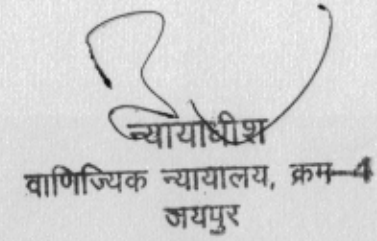 न्यायाधीश
वाणिज्यिक न्यायालय, क्रम-4
जयपुर